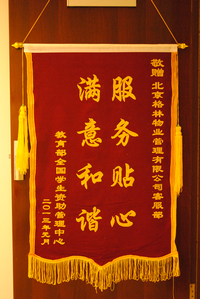 敬赠 北京格林物业管理有限公司客服部
服务贴心
满意和谐
教育部全国学生资助管理中心
二〇一三年元月